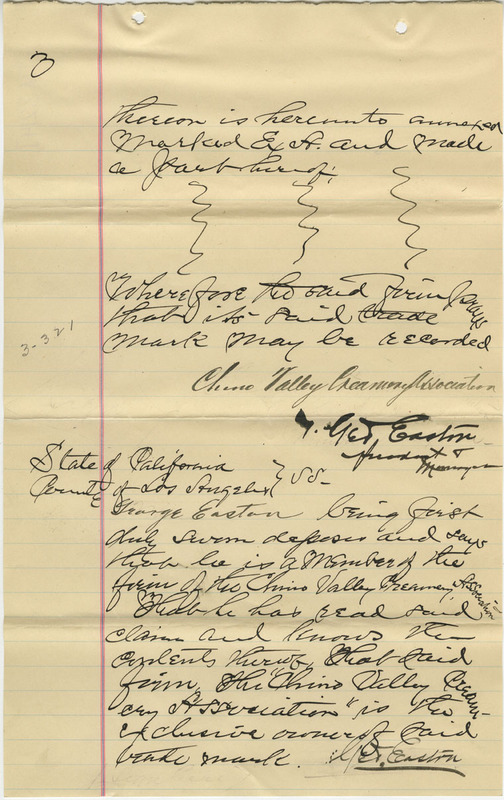 3
thereon is hereunto annexed
Marked Ex A. and made
a part hereof,
Wherefore the said firm prays
that its said trade
mark may be recorded
3-321
Chino Valley Creamery Association
Geo. Easton
President &
Manager
State of California
County of Los Angeles } SS-
George Easton being first
duly sworn deposes and says
that he is a Member of the
firm of the Chino Valley Creamery Association
That he has read said
claim and knows the
contents thereof, that said
firm, The "Chino Valley Cream-
ery Association" is the
exclusive owner of said
trade mark. Geo. Easton